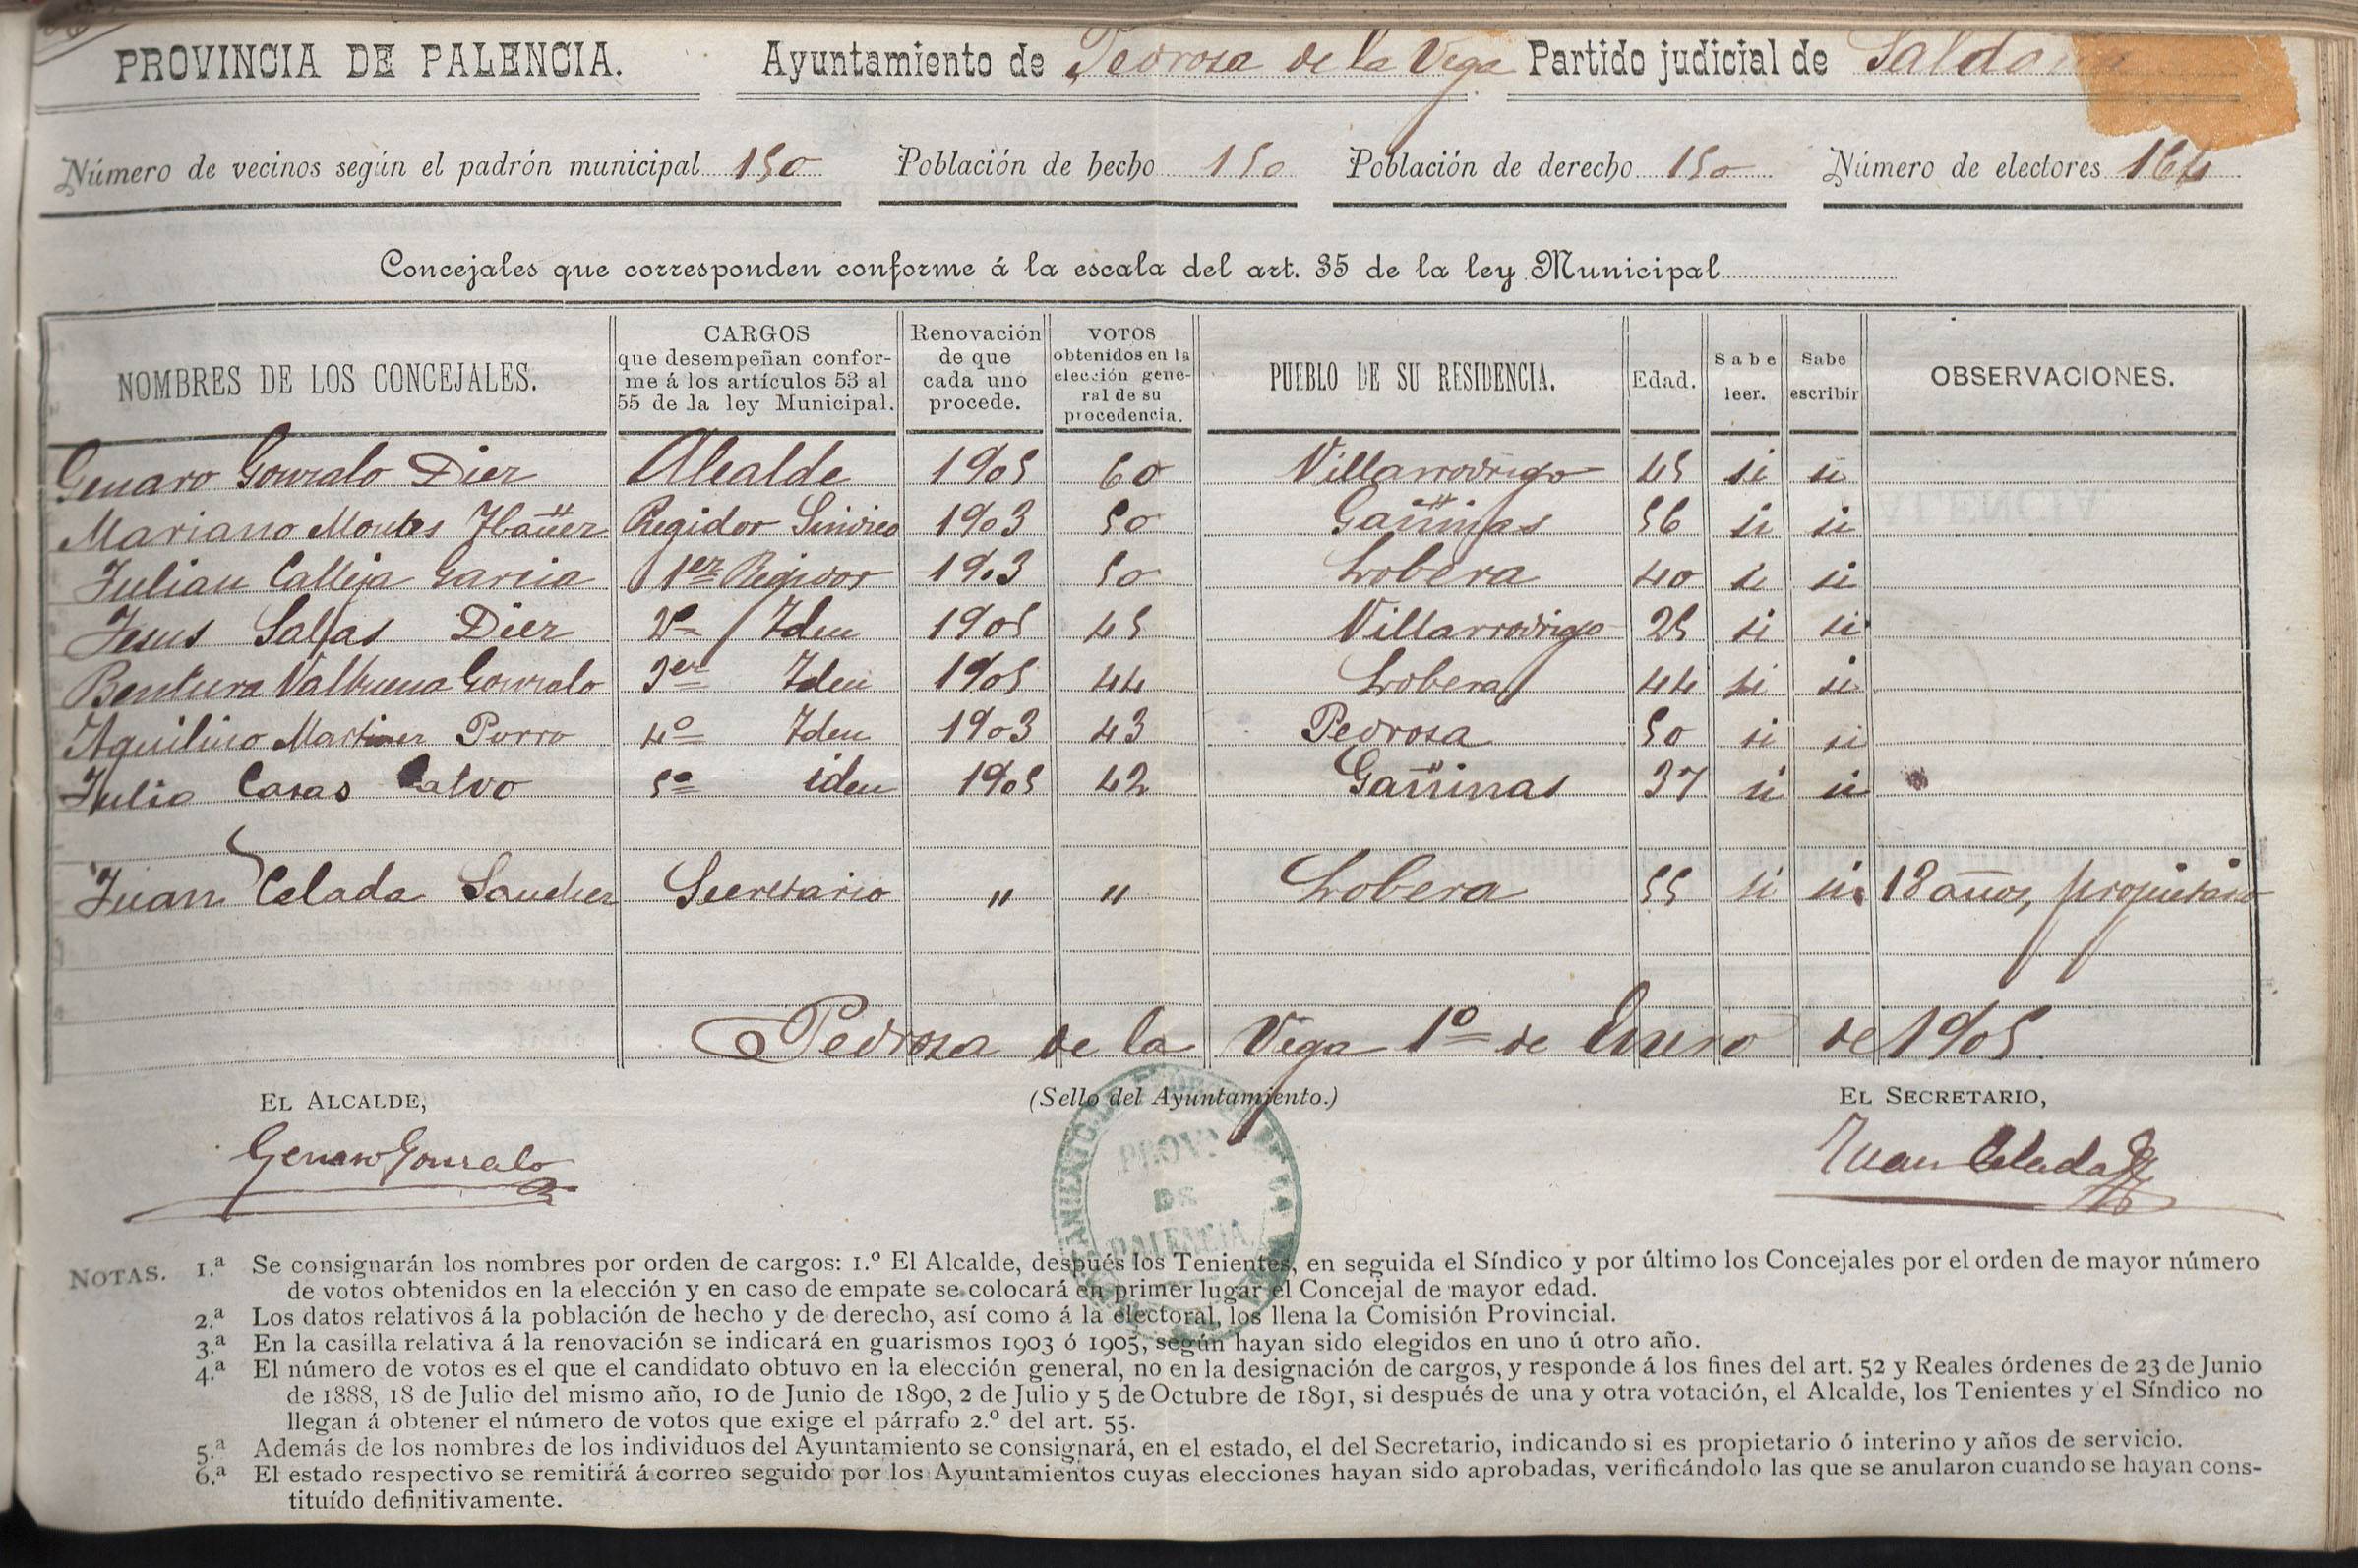 PROVINCIA DE PALENCIA. Ayuntamiento de Pedrosa de la Vega Partido judicial de Saldaña
Número de vecinos según el padrón municipal 150 Población de hecho 150 Población de derecho 150 Número de electores 164
Concejales que corresponden conforme á la escala del art. 35 de la ley Municipal
NOMBRES DE LOS CONCEJALES. CARGOS que desempeñan conforme á los artículos 53 al 55 de la ley Municipal. Renovación de que cada uno procede. VOTOS obtenidos en la elección general de su procedencia. PUEBLO DE SU RESIDENCIA. Edad. Sabe leer. Sabe escribir OBSERVACIONES.
Genaro Gonzalo Diez Alcalde 1905 60 Villarrodrigo 45 si si
Mariano Montes Ibañez Regidor Sindico 1903 50 Gañinas 56 si si
Julian Calleja Garcia 1er Regidor 1903 50 Lobera 40 si si
Jesus Salas Diez 2º Iden 1905 45 Villarrodrigo 25 si si
Bentura Valbuena Gonzalo 3er Iden 1905 44 Lobera 44 si si
Aquilino Martinez Porro 4º Iden 1903 43 Pedrosa 50 si si
Julio Casas Calvo 5º iden 1905 42 Gañinas 37 si si
Juan Celada Sanchez Secretario " " Lobera 55 si si. 18 años, propietario
Pedrosa de la Vega 1º de Enero de 1905.
EL ALCALDE, (Sello del Ayuntamiento.) EL SECRETARIO,
Genaro Gonzalo Juan Celada
PROVª
DE
PALENCIA
NOTAS. 1.ª Se consignarán los nombres por orden de cargos: 1.º El Alcalde, después los Tenientes, en seguida el Síndico y por último los Concejales por el orden de mayor número
de votos obtenidos en la elección y en caso de empate se colocará en primer lugar el Concejal de mayor edad.
2.ª Los datos relativos á la población de hecho y de derecho, así como á la electoral, los llena la Comisión Provincial.
3.ª En la casilla relativa á la renovación se indicará en guarismos 1903 ó 1905, según hayan sido elegidos en uno ú otro año.
4.ª El número de votos es el que el candidato obtuvo en la elección general, no en la designación de cargos, y responde á los fines del art. 52 y Reales órdenes de 23 de Junio
de 1888, 18 de Julio del mismo año, 10 de Junio de 1890, 2 de Julio y 5 de Octubre de 1891, si después de una y otra votación, el Alcalde, los Tenientes y el Síndico no
llegan á obtener el número de votos que exige el párrafo 2.º del art. 55.
5.ª Además de los nombres de los individuos del Ayuntamiento se consignará, en el estado, el del Secretario, indicando si es propietario ó interino y años de servicio.
6.ª El estado respectivo se remitirá á correo seguido por los Ayuntamientos cuyas elecciones hayan sido aprobadas, verificándolo las que se anularon cuando se hayan cons-
tituído definitivamente.